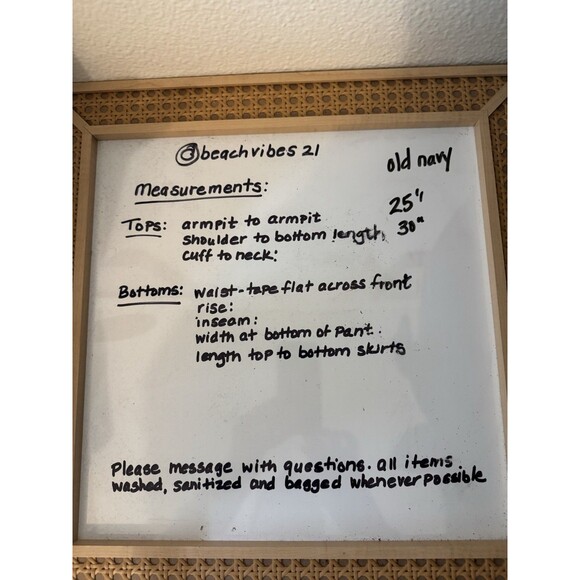 @beachvibes 21
old navy
Measurements:
Tops: armpit to armpit 25"
shoulder to bottom length 30"
cuff to neck:
Bottoms: waist-tape flat across front
rise:
inseam:
width at bottom of pant:
length top to bottom skirts
Please message with questions. all items
washed, sanitized and bagged whenever possible